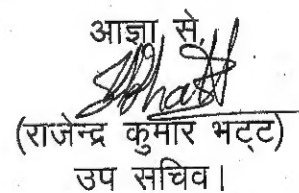 आज्ञा से,
(राजेन्द्र कुमार भट्ट)
उप सचिव।